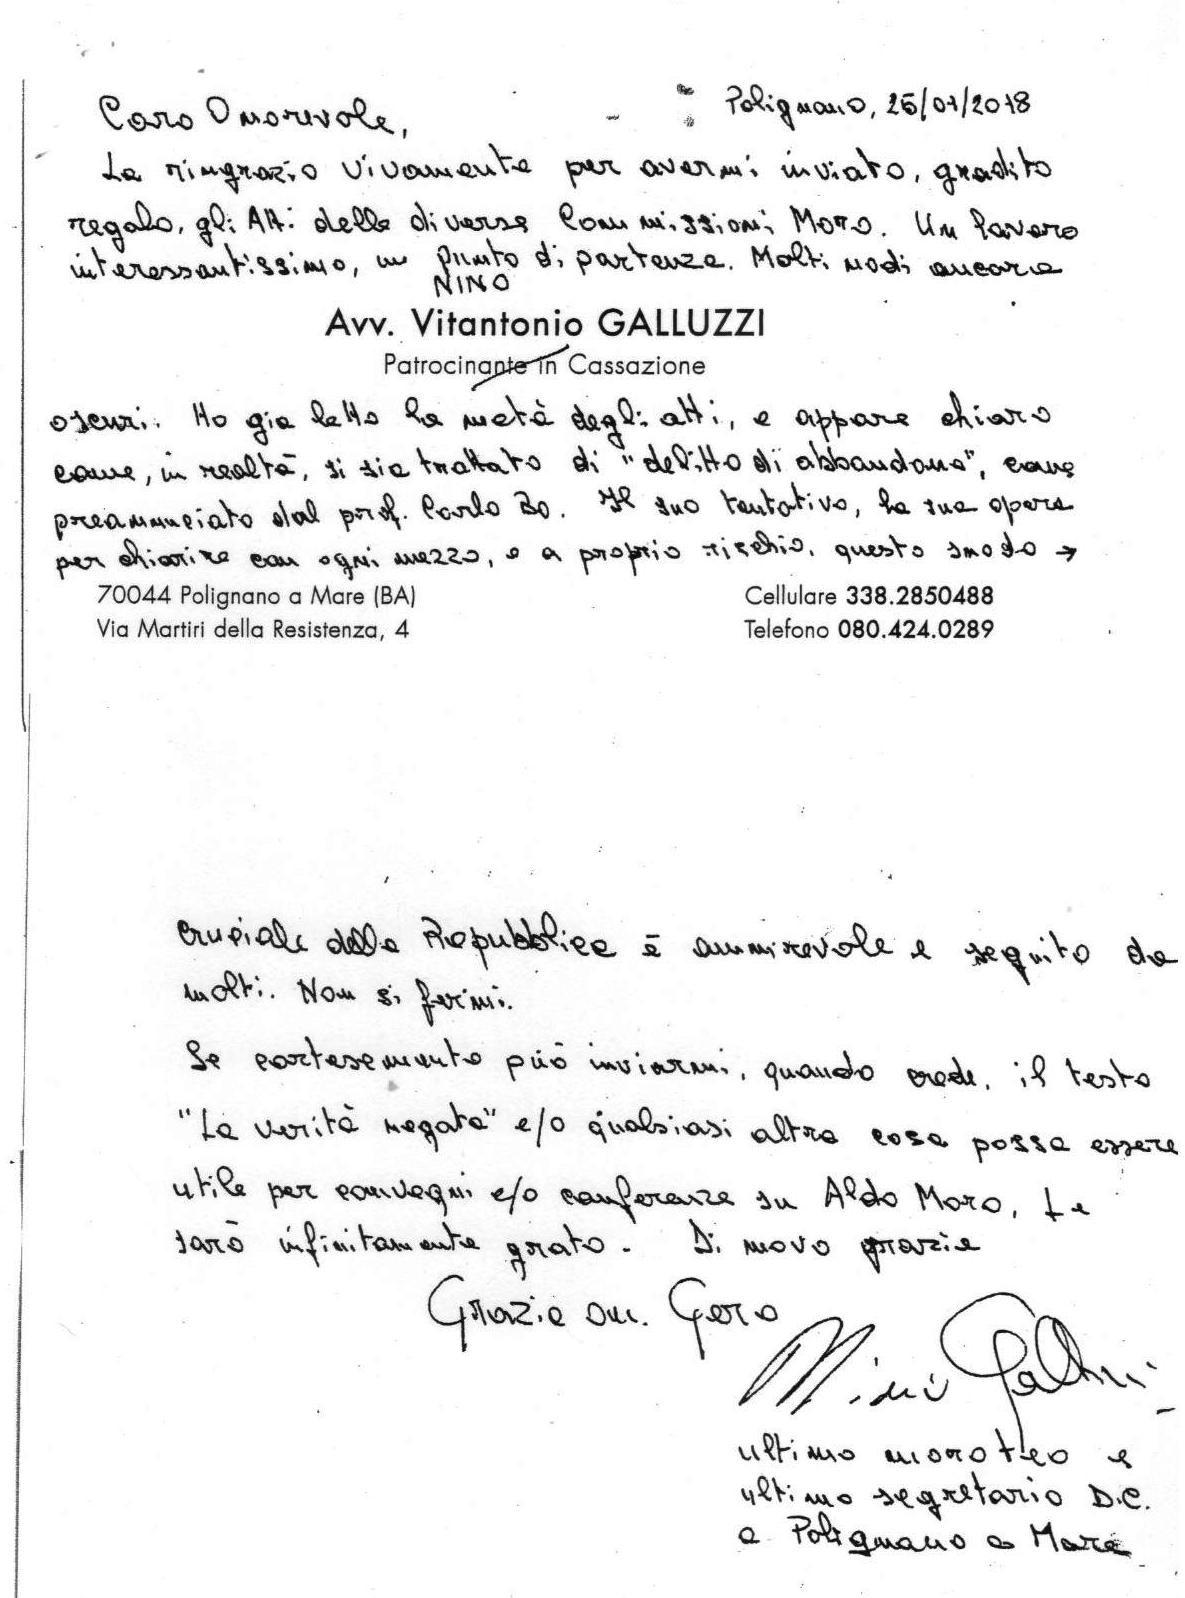 Polignano, 25/01/2018
Caro Onorevole,
La ringrazio vivamente per avermi inviato, gradito
regalo, gli Atti delle diverse Commissioni Moro. Un lavoro
interessantissimo, un punto di partenza. Molti nodi ancora
NINO
Avv. Vitantonio GALLUZZI
Patrocinante in Cassazione
oscuri. Ho già letto la metà degli atti, e appare chiaro
come, in realtà, si sia trattato di "delitto di abbandono", come
preannunciato dal prof. Carlo Bo. Il suo tentativo, la sua opera
per chiarire con ogni mezzo, e a proprio rischio, questo snodo →
70044 Polignano a Mare (BA)
Via Martiri della Resistenza, 4
Cellulare 338.2850488
Telefono 080.424.0289
cruciale della Repubblica è ammirevole e seguito da
molti. Non si fermi.
Se cortesemente può inviarmi, quando crede, il testo
"La verità negata" e/o qualsiasi altra cosa possa essere
utile per convegni e/o conferenze su Aldo Moro, Le
sarò infinitamente grato. Di nuovo grazie
Grazie on. Gero
Nino Galluzzi
ultimo moroteo e
ultimo segretario D.C.
a Polignano a Mare